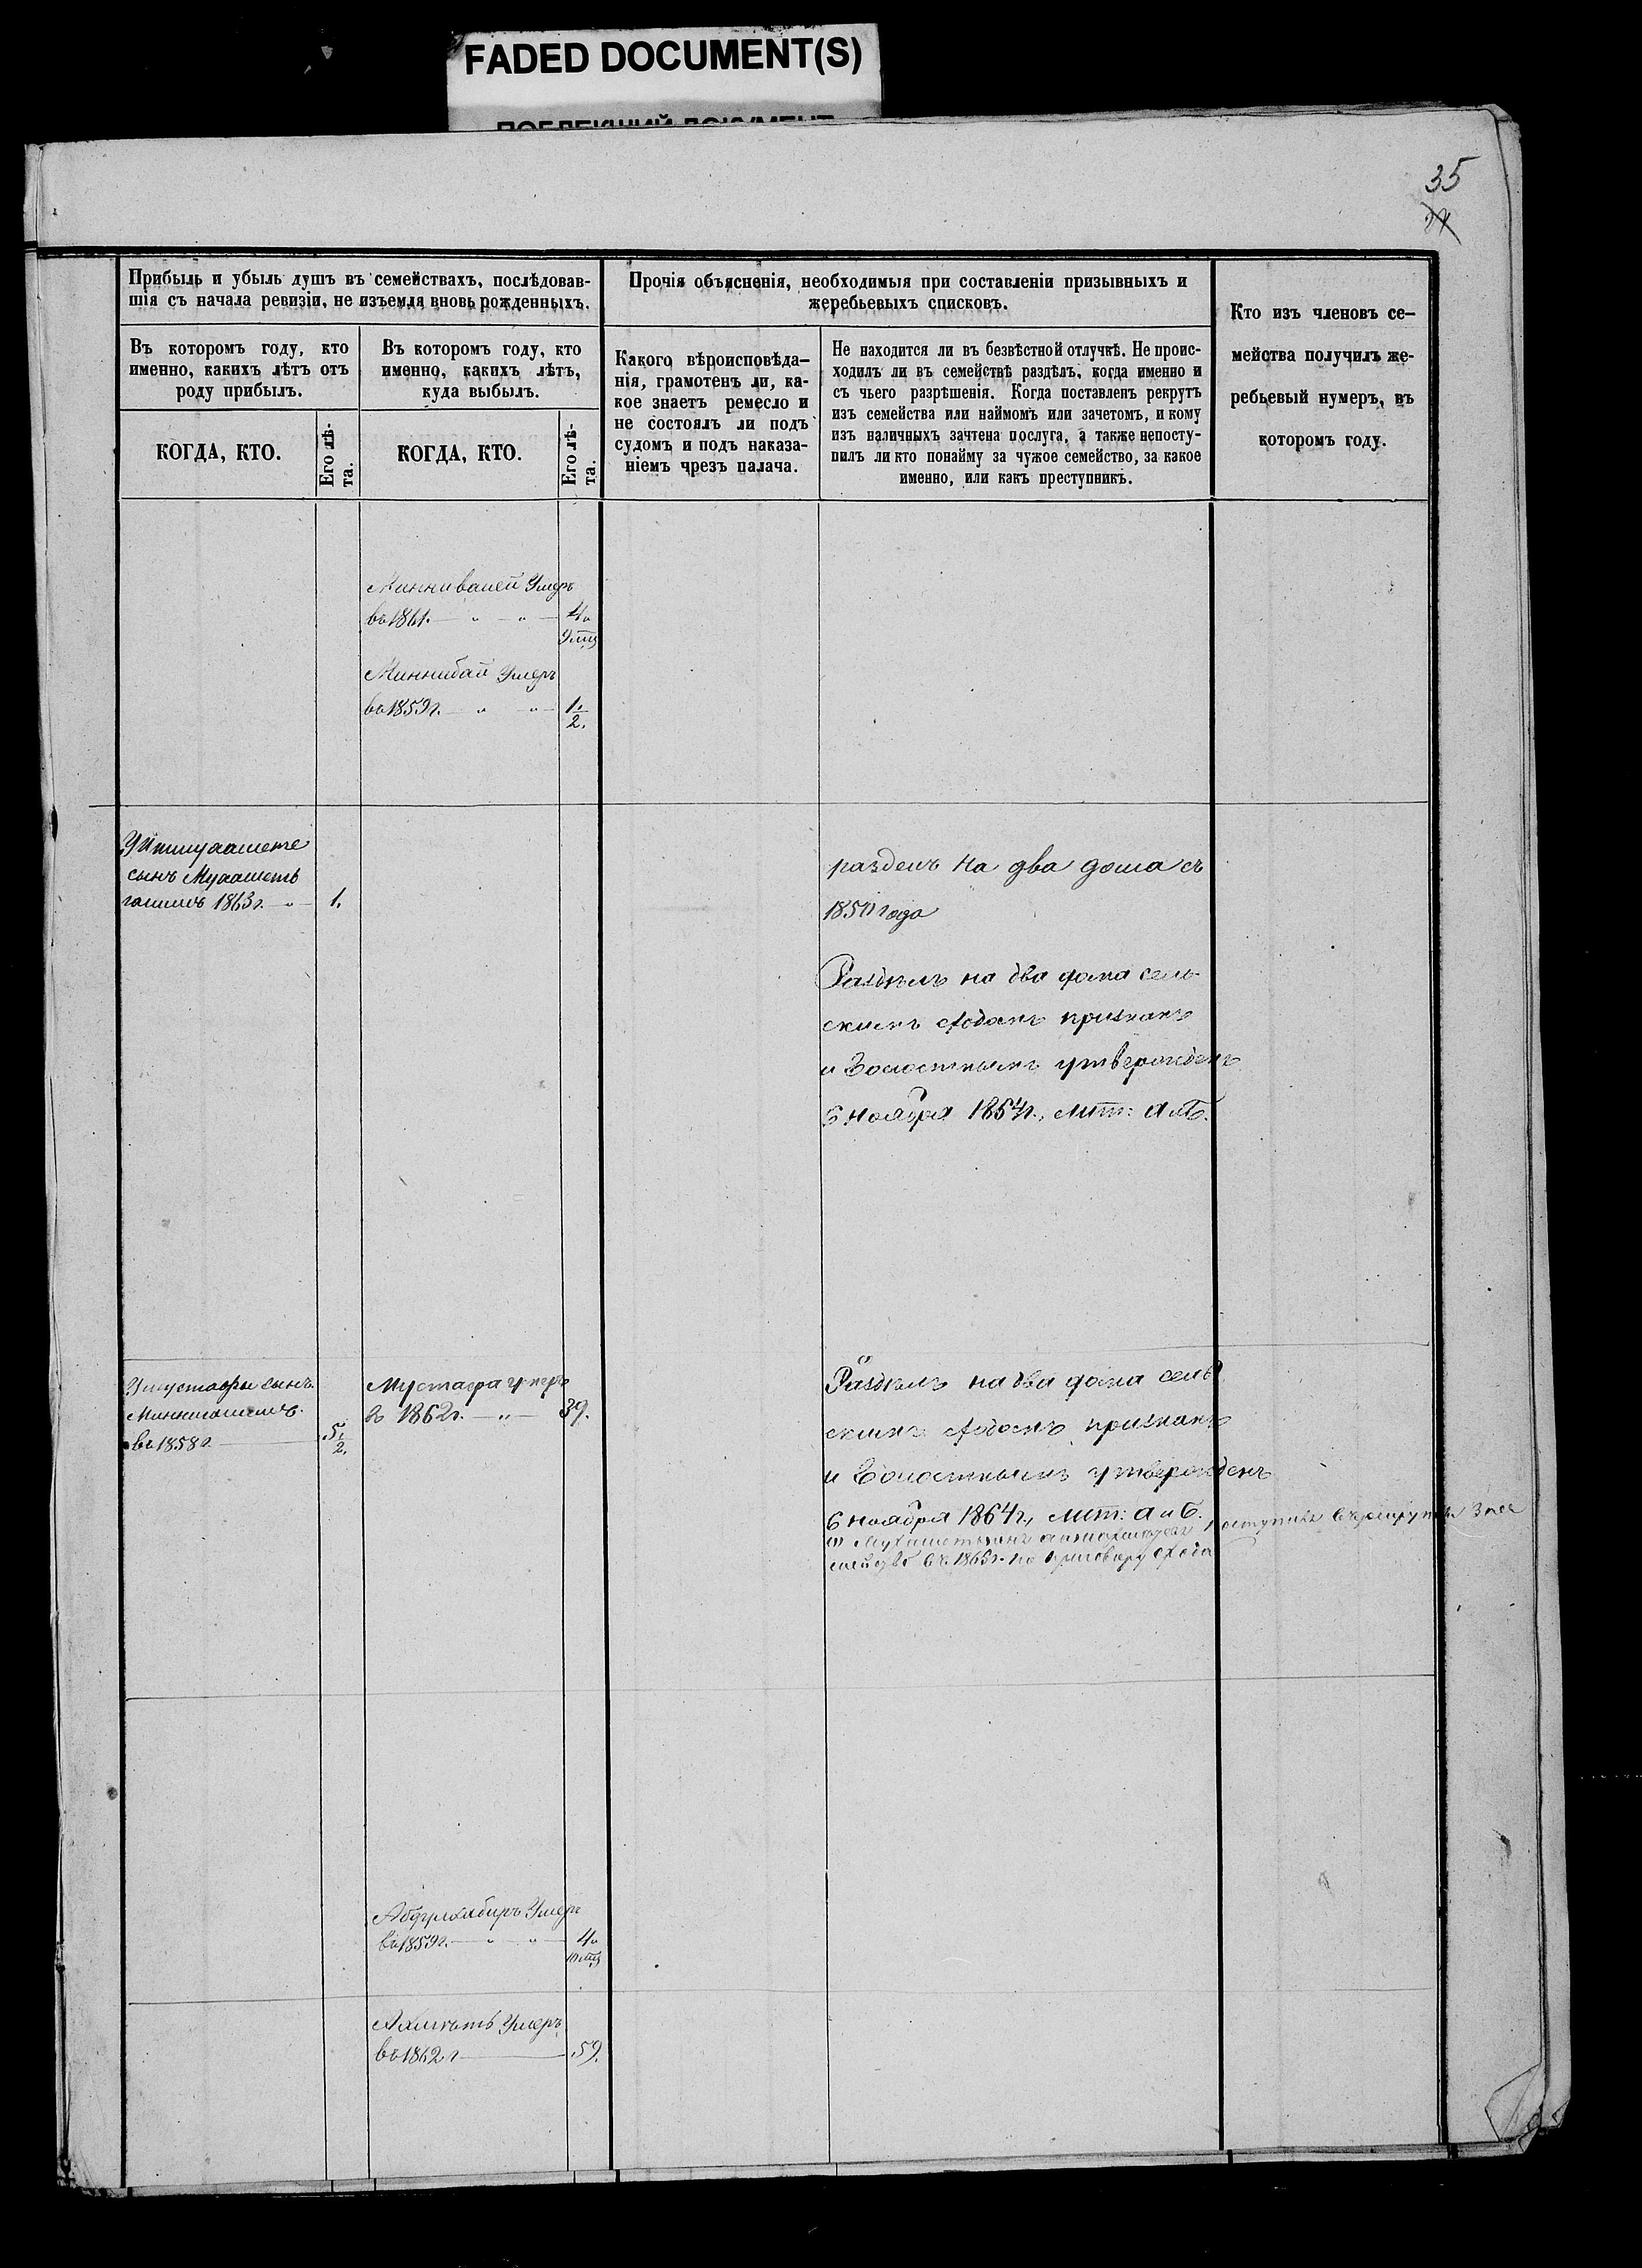 FADED DOCUMENT(S)
ПОБЛЕКШИЙ ДОКУМЕНТ
35
Прибыль и убыль душъ въ семействахъ, послѣдовав-
шія съ начала ревизіи, не изъемля вновь рожденныхъ.
Въ которомъ году, кто
именно, какихъ лѣтъ отъ
роду прибылъ.
КОГДА, КТО.
Его лѣ-
та.
Въ которомъ году, кто
именно, какихъ лѣтъ,
куда выбылъ.
КОГДА, КТО.
Его лѣ-
та.
Прочія объясненія, необходимыя при составленіи призывныхъ и
жеребьевыхъ списковъ.
Какого вѣроисповѣда-
нія, грамотенъ ли, ка-
кое знаетъ ремесло и
не состоялъ ли подъ
судомъ и подъ наказа-
ніемъ чрезъ палача.
Не находится ли въ безвѣстной отлучкѣ. Не проис-
ходилъ ли въ семействѣ раздѣлъ, когда именно и
съ чьего разрѣшенія. Когда поставленъ рекрутъ
изъ семейства или наймомъ или зачетомъ, и кому
изъ наличныхъ зачтена послуга, а также непосту-
пилъ ли кто понайму за чужое семейство, за какое
именно, или какъ преступникъ.
Кто изъ членовъ се-
мейства получилъ же-
ребьевый нумеръ, въ
которомъ году.
Миннивалей Умеръ
въ 1861. 4
9 мц
Миннибай Умеръ
въ 1859 г. 1/2.
сынъ
1863 г. 1.
разделъ на два дома съ
года
Раздѣлъ на два дома сель-
скимъ сходомъ признанъ
и Волостнымъ утвержденъ
6 ноября лит: А и Б.
У Мустафы сынъ
въ 1858 г. 5 1/2.
Мустафа умеръ
въ 1862 г. 39.
Раздѣлъ на два дома сель
скимъ сходомъ признанъ
и Волостнымъ утвержденъ
6 ноября 1864 г., лит: А и Б.
поступилъ въ рекруты
въ 1865 г. по приговору схода
Абдулхабиръ Умеръ
въ 1859 г. 4
10 мц
Ахметь Умеръ
въ 1862 г 59.